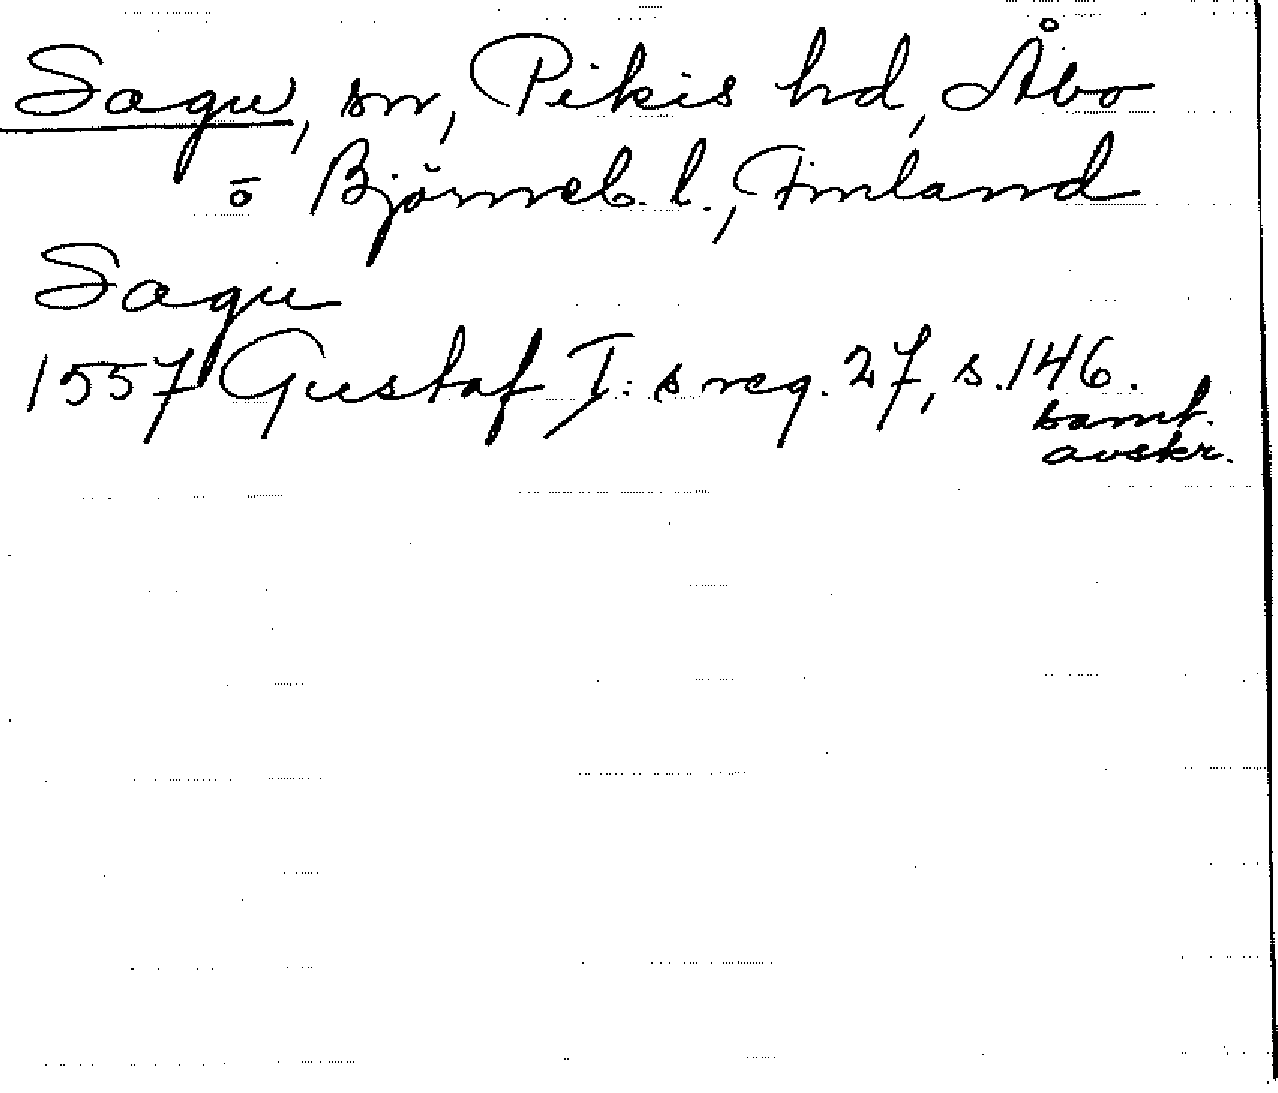 Sagu, sn, Pikis hd, Åbo
o Björneb. l., Finland
Sagu
1557 Gustaf I:s reg. 27, s. 146.
samt.
avskr.